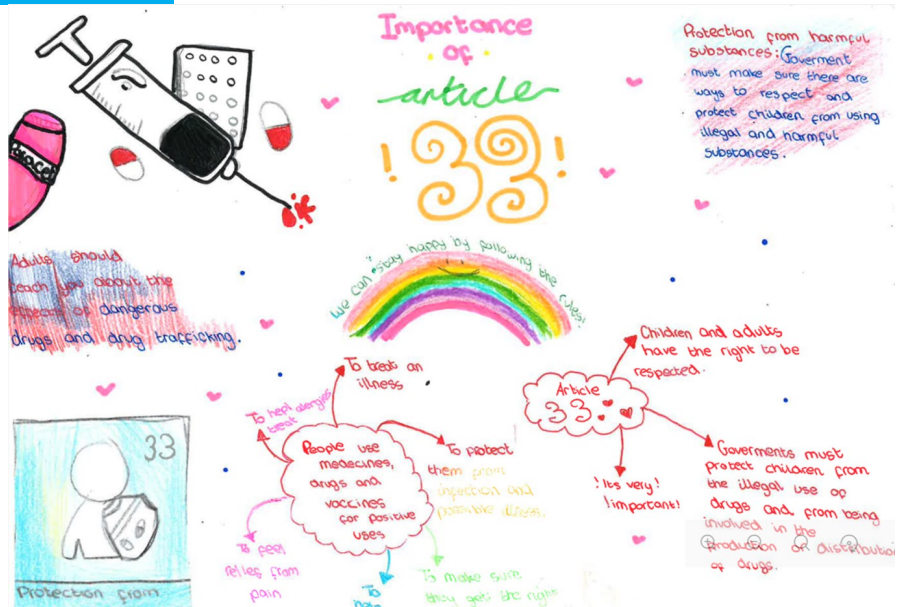 Importance
of
article
!33!
Protection from harmful
substances: Goverment
must make sure there are
ways to respect and
protect children from using
illegal and harmful
substances.
Adults should
teach you about the
effects of dangerous
drugs and drug trafficking.
We can "stay happy by following the rules!
People use
medecines,
drugs and
vaccines
for positive
uses
To treat an
illness
To help allergies
treat
To protect
them from
infection and
possible illness.
To feel
relief from
pain
To
To make sure
they get the right
Article
33
Children and adults
have the right to be
respected.
! Its very!
!important!
Goverments must
protect children from
the illegal use of
drugs and from being
involved in the
production or distributio
of drugs.
33
Protection from